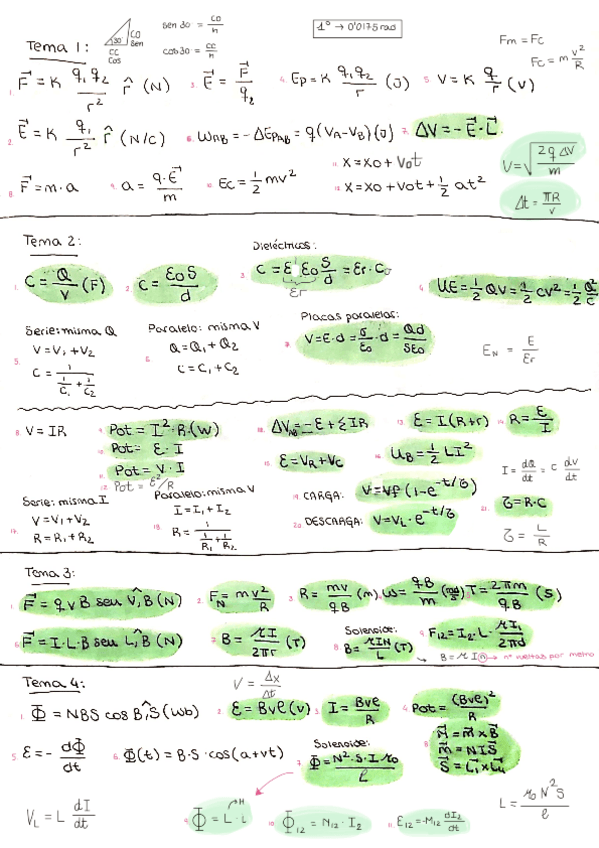 Tema 1:
30°
CO
Sen
CC
Cos
sen 30 = CO/h
cos 30 = CC/h
1° → 0'0175 rad
Fm = Fc
Fc = m v²/R
1. F⃗ = K q₁q₂/r² r̂ (N)
3. E⃗ = F⃗/q₂
4. Ep = K q₁q₂/r (J)
5. V = K q/r (V)
2. E⃗ = K q₁/r² r̂ (N/C)
6. WAB = -ΔEPAB = q(VA-VB)(J)
7. ΔV = -E⃗·L⃗
V = √(2q ΔV/m)
8. F⃗ = m·a
9. a = q·E⃗/m
10. Ec = 1/2 mv²
11. X = X0 + V0t
12. X = X0 + V0t + 1/2 at²
Δt = πR/v
Tema 2:
Dieléctricos:
1. C = Q/V (F)
2. C = ε0 S/d
3. C = ε ε0 S/d = εr · C0
εr
4. UE = 1/2 QV = 1/2 CV² = 1/2 Q²/C
Serie: misma Q
Paralelo: misma V
Placas paralelas:
5. V = V₁ + V₂
C = 1/(1/C₁ + 1/C₂)
6. Q = Q₁ + Q₂
C = C₁ + C₂
7. V = E·d = σ/ε0 · d = Qd/Sε0
EN = E/εr
8. V = IR
9. Pot = I²·R (W)
10. Pot = ε·I
11. Pot = V·I
12. Pot = ε²/R
ΔVAB = -ε + ΣIR
13. ε = I(R+r)
14. R = ε/I
15. ε = VR + VC
16. UB = 1/2 LI²
I = dQ/dt = C dV/dt
Serie: misma I
Paralelo: misma V
17. V = V₁ + V₂
R = R₁ + R₂
I = I₁ + I₂
R = 1/(1/R₁ + 1/R₂)
19. CARGA: V = Vf (1-e^-t/τ)
20. DESCARGA: V = VL · e^-t/τ
21. τ = R·C
τ = L/R
Tema 3:
1. F⃗ = q v B sen V,B (N)
2. FN = m v²/R
3. R = mv/qB (m)
ω = qB/m (rad/s)
T = 2πm/qB (s)
6. F⃗ = I·L·B sen L,B (N)
7. B = μI/2πr (T)
Solenoide:
8. B = μIN/L (T)
9. F12 = I₂·L· μI₁/2πd
B = μ I n → nº vueltas por metro
Tema 4:
V = Δx/Δt
1. Φ = NBS cos B,S (Wb)
2. ε = Bvl (V)
3. I = Bvl/R
4. Pot = (Bvl)²/R
5. ε = - dΦ/dt
6. Φ(t) = B·S·cos(a+vt)
Solenoide:
7. Φ = N²·S·I μ0/l
8. M⃗ = m⃗ x B⃗
m⃗ = N I S⃗
S⃗ = L⃗₁ x L⃗₂
VL = L dI/dt
9. Φ = L·i
→H
10. Φ12 = N12 · I₂
11. ε12 = -M12 dI₂/dt
L = μ0 N² S/l